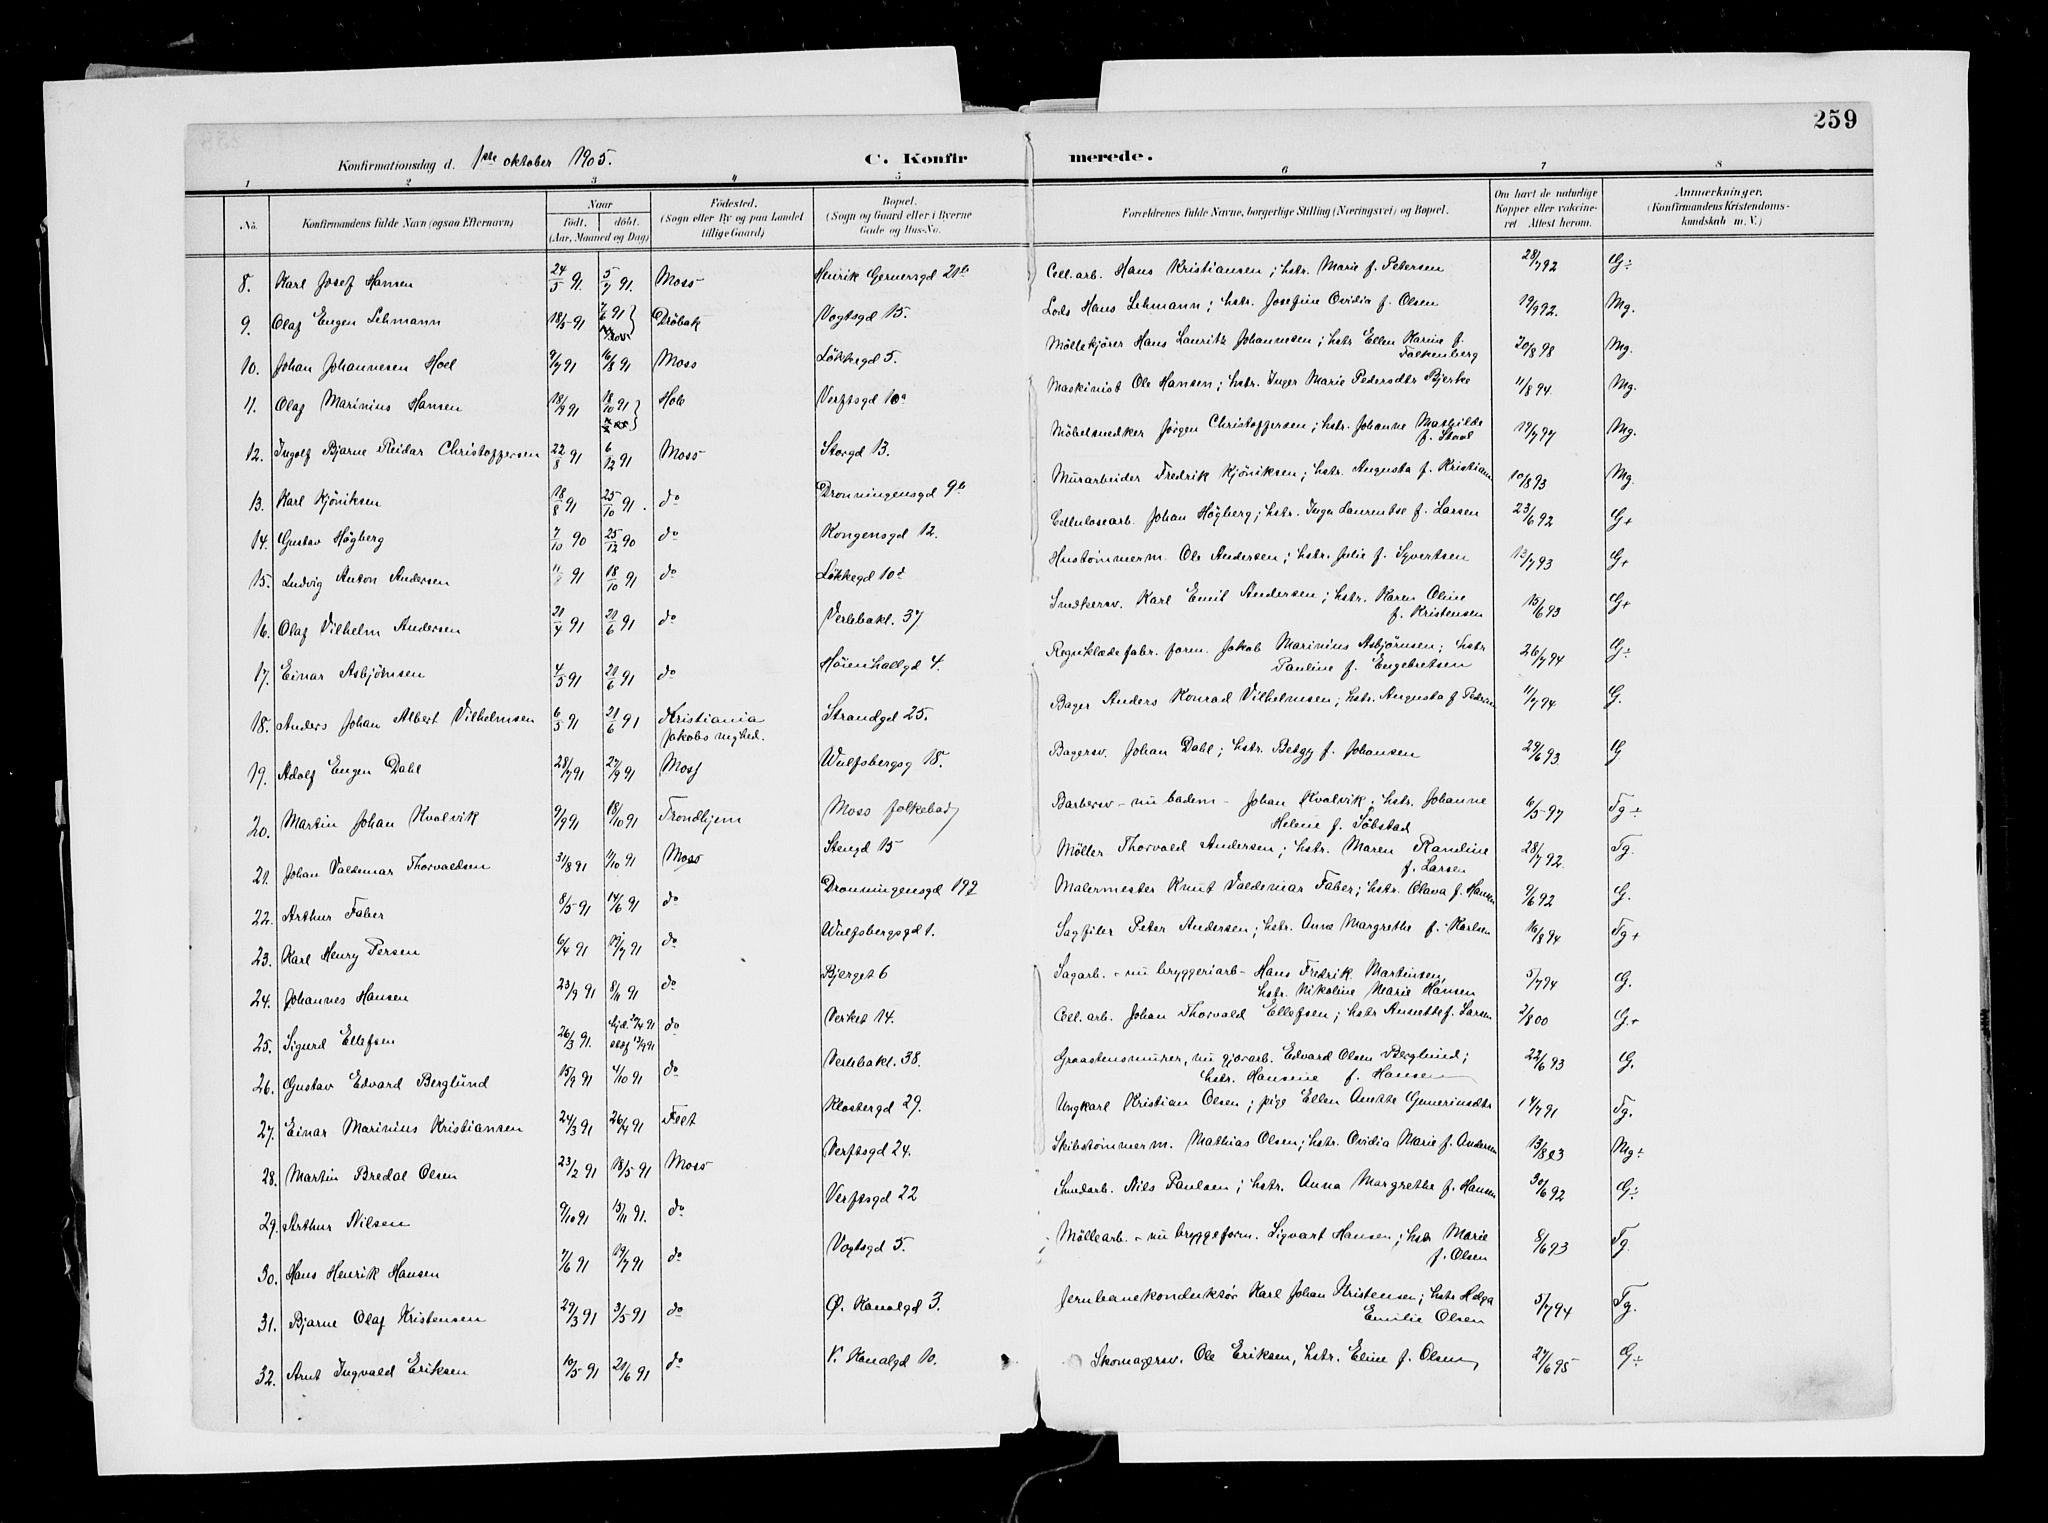 259
Konfirmationsdag d. 1ste oktober 1905. C. Konfirmerede.
1 2 3 4 5 6 7 8
No. Konfirmandens fulde Navn (ogsaa Efternavn) Naar født. døbt. (Aar, Maaned og Dag) Fødested. (Sogn eller By og paa Landet tillige Gaard) Bopæl. (Sogn og Gaard eller i Byerne Gade og Hus-No. Forældrenes fulde Navne, borgerlige Stilling (Næringsvei) og Bopæl. Om havt de naturlige Kopper eller vakcineret Attest herom. Anmærkninger. (Konfirmandens Kristendomskundskab m. V.)
8. Karl Josef Hansen 24/5 91. 5/7 91. Moss Henrik Gernersgd 21b Cell. arb. Hans Kristiansen; hstr. Marie f. Petersen 28/7 92 G÷
9. Olaf Eugen Lehmann 18/5 91 7/6 91 Drøbak Vogtsgd 15. Lods Hans Lehmann; hstr. Josefine Ovidia f. Olsen 19/9 92. Mg.
10. Johan Johannesen Hoel 9/7 91 16/8 91 Moss Løkkegd 5. Møllekjører Hans Lauritz Johannesen; hstr Ellen Karine f. Falkenberg 30/8 98 Mg.
11. Olaf Marinius Hansen 18/9 91 18/10 91 Hole Verftsgd 10a Maskinist Ole Hansen; hstr. Inger Marie Pedersdtr Bjerke 11/8 94. Mg.
12. Ingolf Bjarne Reidar Christoffersen 22/8 91 6/12 91 Moss Storgd 13. Møbelsnedker Jørgen Christoffersen; hstr. Johanne Mathilde f. Staal 17/7 97 Mg.
13. Karl Kjøniksen 18/8 91 25/10 91. do Dronningensgd 9b Murarbeider Fredrik Kjøniksen; hstr. Augusta f. Kristiansen 10/8 93 Mg.
14. Gustav Högberg 7/10 90 25/12 90 do Kongensgd 12. Cellulosearb. Johan Högberg; hstr. Inger Laurentse f. Larsen 23/6 92 G+
15. Ludvig Anton Andersen 91 18/10 91 do Løkkegd 10d Hustømmerm. Ole Andersen; hstr. Julie f. Syvertsen 13/7 93 G+
16. Olaf Vilhelm Andersen 20/4 91 21/6 91 do Verlebakl. 37 Snedkersv. Karl Emil Andersen; hstr. Karen Oline f. Kristensen 15/6 93 G+
17. Einar Asbjørnsen 4/5 91 21/6 91 do Høienhallgd 4. Regnklædefabr. form. Jakob Marinius Asbjørnsen; hstr Pauline f. Engebretsen 26/7 94 G÷
18. Anders Johan Albert Vilhelmsen 6/5 91 21/6 91 Kristiania Jakobs mghed. Strandgd 25. Bager Anders Konrad Vilhelmsen; hstr. Augusta f Pedersen 11/7 94 G.
19. Adolf Eugen Dahl 28/7 91 27/9 91 Moss Wulfsbergsg 18. Bagersv. Johan Dahl; hstr. Betzy f. Johansen 29/6 93. G
20. Martin Johan Kvalvik 9/9 91 18/10 91 Trondhjem Moss folkebad Barbersv – nu badem – Johan Kvalvik; hstr. Johanne Helene f. Søbstad 6/5 97 Tg÷
21. Johan Valdemar Thorvaldsen 31/8 91 11/10 91 Moss Stengd 15 Møller Thorvald Andersen; hstr. Maren Rambine f. Larsen 28/7 92. Tg.
22. Arthur Faber 8/5 91 14/6 91 do Dronningensgd 19 Malermester Knut Valdemar Faber; hstr. Olava f. Hansen 9/6 92 G.
23. Karl Henry Persen 6/4 91 19/7 91 do Wulfsbergsgd 1. Sagfiler Peter Andersen; hstr. Anne Margrethe f. Karlsen 16/8 94 Tg+
24. Johannes Hansen 23/9 91 8/11 91 do Bjerget 6 Sagarb. – nu bryggeriarb – Hans Fredrik Martinsen, hstr. Nikoline Marie Hansen 5/7 94 G.
25. Sigurd Ellefsen 26/3 91. hjd. 20/4 91 13/9 91 do Verket 14. Cell. arb. Johan Thorvald Ellefsen; hstr Annette f. Larsen 2/8 00 G+
26. Gustav Edvard Berglund 15/9 91 4/10 91 do Verlebakl. 38. Graastensmurer, nu gjørarb. Edvard Olsen Berglund; hstr. Hansine f. Hansen 22/6 93 G.
27. Einar Marinius Kristiansen 24/3 91 26/4 91 Feet Klostergd 29. Ungkarl Kristian Olsen; pige Ellen Anette Gunerius dtr 14/7 91 Tg.
28. Martin Bredal Olsen 23/2 91 18/5 91 Moss Verftsgd 24. Skibstømmerm. Mathias Olsen; hstr. Ovidia Marie f. Andersen 13/8 03 Mg÷
29. Arthur Nilsen 9/10 91 15/11 91. do Verftsgd 22 Smedarb. Nils Paulsen; hstr. Anna Margrethe f. Hansen 30/6 92 G÷
30. Hans Henrik Hansen 7/6 91 19/7 91 do Vogtsgd 5. Møllearb. – nu bryggeform. Sigvart Hansen; hstr Marie f. Olsen 8/6 93 Tg.
31. Bjarne Olaf Kristensen 29/3 91 3/5 91 do Ø. Kanalgd 3. Jernbanekonduktør Karl Johan Kristensen; hstr Helga Emilie Olsen 5/7 94 Tg.
32. Arnt Ingvald Eriksen 10/5 91 21/6 91 do V. Kanalgd 10. Skomagersv. Ole Eriksen, hstr. Eline f. Olsen 27/6 95 G÷